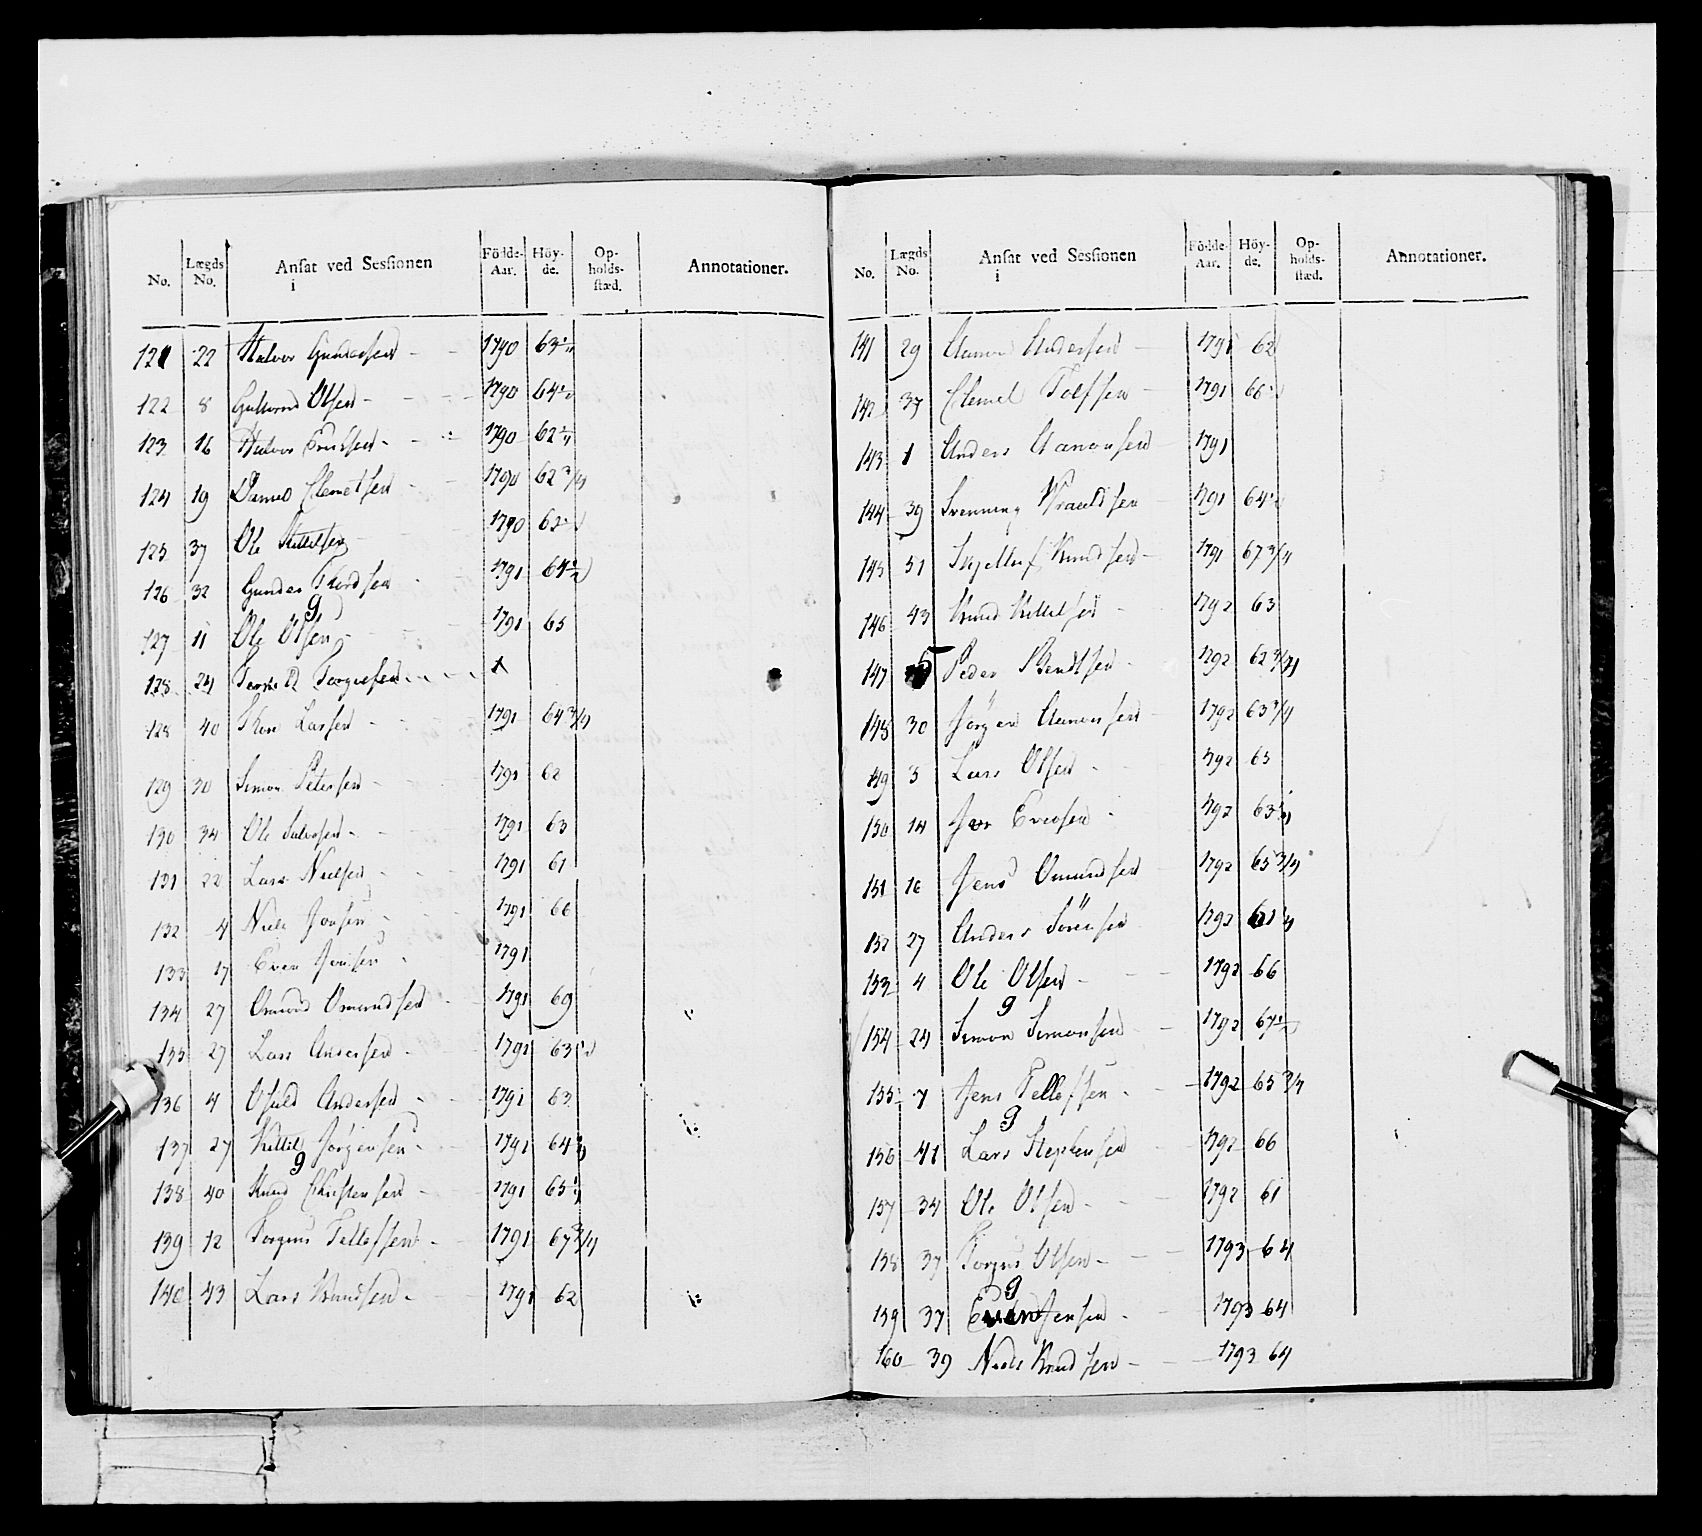 No. Lægds No. Ansat ved Sessionen i Födde-Aar. Höy-de. Op-holds-stæd. Annotationer.
121 22 Halvor Gundersen 1790 63 1/4
122 8 Gulbrand Olsen 1790 64 1/2
123 16 Halvor Knudsen 1790 62 1/4
124 19 Daniel Clemetsen 1790 62 3/4
125 37 Ole Kittilsen 1790 62 1/2
126 32 Gunder Thordsen 1791 64 1/2
127 11 Ole Olsen 9 1791 65
128 24 Torgiusen
128 40 Thor Larsen 1791 64 3/4
129 30 Simon Petersen 1791 62
130 34 Ole Salvesen 1791 63
131 22 Lars Nielsen 1791 61
132 4 Niels Jonsen 1791 66
133 17 Even Jonsen 1791
134 27 Omund Omundsen 1791 69
135 27 Lars Andersen 1791 63 1/2
136 4 Osuld Andersen 1791 63
137 27 Kittil Jörgensen 1791 64
138 40 Knud Christensen 9 1791 65
139 12 Torgius Tellefsen 1791 67 3/4
140 43 Lars Knudsen 1791 62
No. Lægds No. Ansat ved Sessionen i Födde-Aar. Höy-de. Op-holds-stæd. Annotationer.
141 29 Aanon Andersen 1791 62
142 37 Clemet Tolfsen 1791 66 1/2
143 1 Anders Aanonsen 1791
144 39 Svennung Wraaldsen 1791 64 1/2
145 51 Kjelluf Knudsen 1791 67 3/4
146 43 Knud Kittilsen 1792 63
147 5 Peder Bendtsen 1792 62 3/4
148 30 Jörgen Aanonsen 1792 63 3/4
149 3 Lars Olsen 1792 63
150 14 Jver Evensen 1792 63
151 16 Jens Omundsen 1792 65 3/4
152 27 Anders Sörensen 1792
153 4 Ole Olsen 1792 66
154 24 Simon Simonsen 9 1792 67 1/2
155 7 Jens Tellefsen 1792 65 3/4
156 41 Lars Stephensen 9 1792 66
157 34 Ole Olsen 1792 61
158 37 Torgius Olsen 1793 64
159 37 Even Jensen 9 1793 64
160 39 Niels Knudsen 1793 64